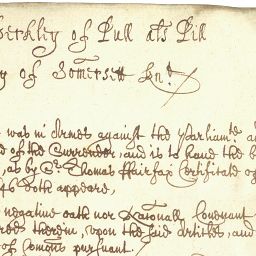 Berkley of Pull als Pill
y of Somersett Knt
was in Armes against the Parliamt. a
d of the Surrender, and is to haue the b
, as by Sr. Thomas Fairfax Certificate o
doth appeare,
negatiue oath nor Nationall Couenant
red therein, upon the said Articles, and
of Comons pursuant.